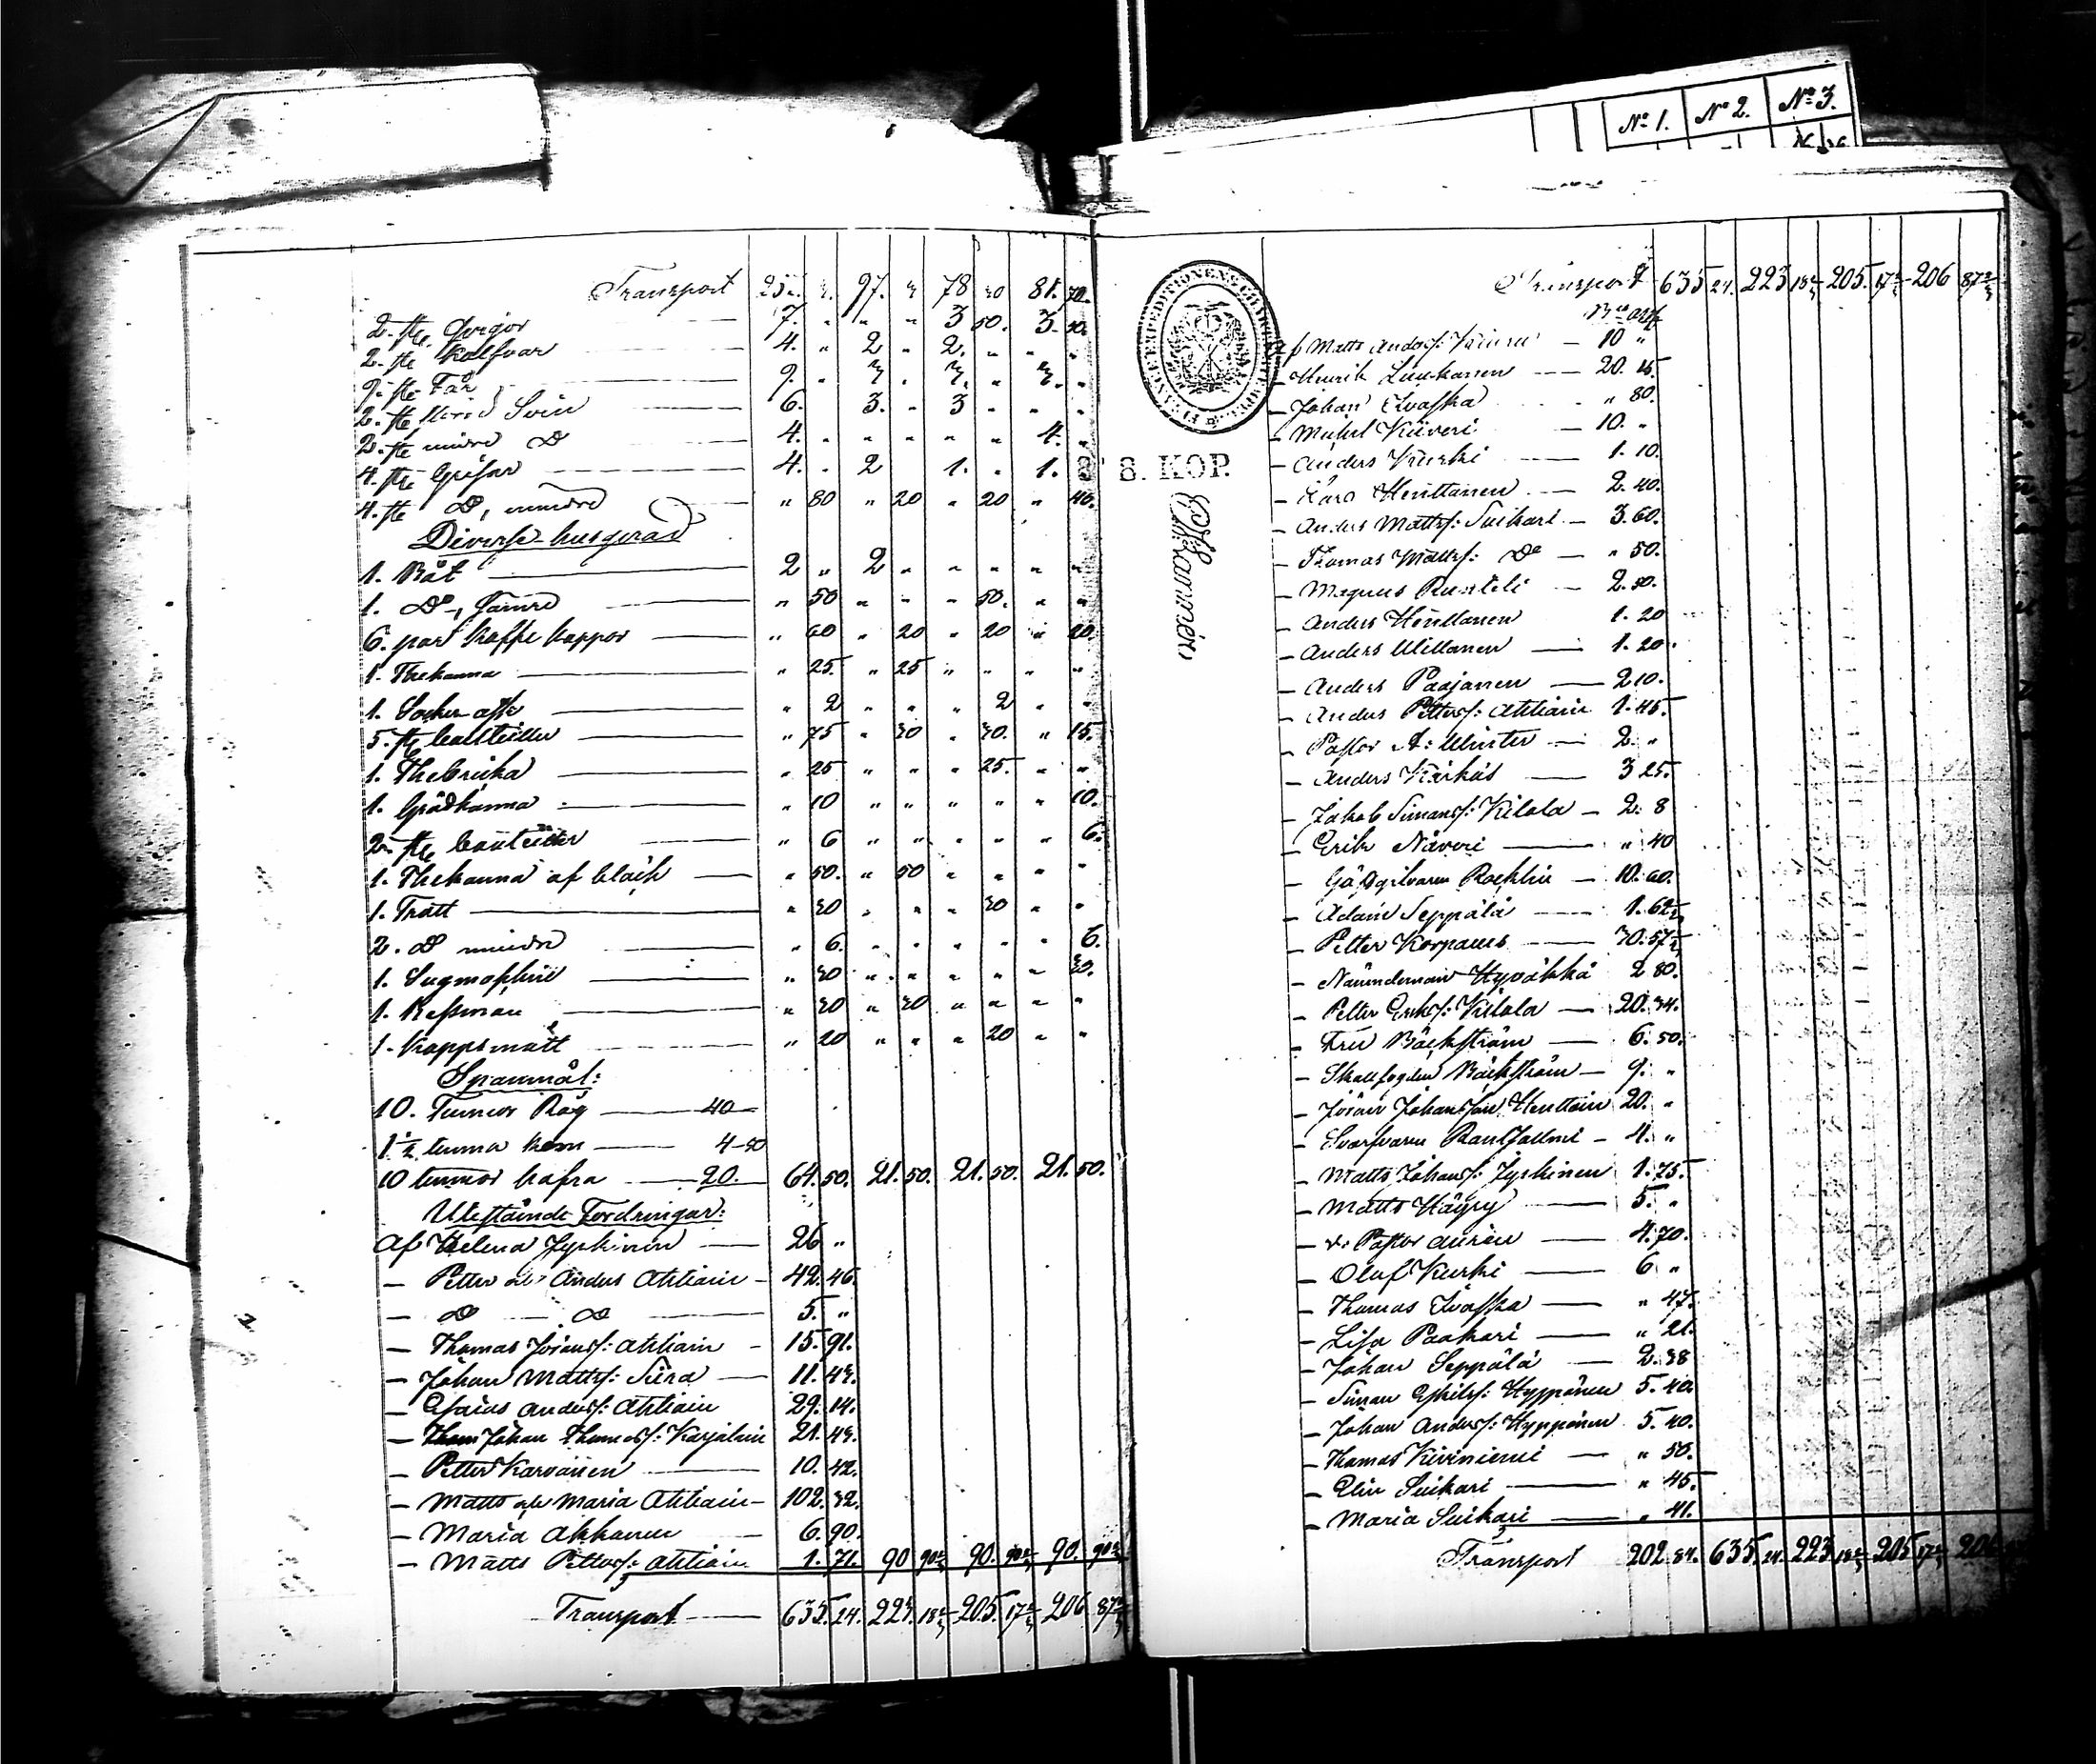 No 1. No 2. No 3.
Transport 97. 78 81. 70.
2. st. Qvigor 7. „ „ „ 3 50. 3. 50.
2. st. Kalfvar 4. „ 2 „ 2. „ „ „
9. st. Får 9. „ 3. „ 3. „ 3. „
2. st. Svin 6. „ 3. „ 3 „ „ „
2. st. mindre Do 4. „ „ „ „ „ 4. „
4. st. Grisar 4. „ 2 „ 1. „ 1. „
4. st. Do, mindre „ 80 „ 20 „ 20 „ 40.
Diverse husgeråd
1. Båt 2 „ 2 „ „ „ „ „
1. Do, sämre „ 50 „ „ „ 50. „ „
6. par kaffe koppor „ 60 „ 20 „ 20 „ 20.
1. Thekanna „ 25. „ 25 „ „ „ „
1. Socker ask „ 2 „ „ „ 2 „ „
5. st. bouteiller „ 75 „ 30 „ 30. „ 15.
1. Thebricka „ 25 „ „ „ 25. „ „
1. Gräddkanna „ 10 „ „ „ „ „ 10.
2. st. bouteiller „ 6 „ „ „ „ „ 6.
1. Thekanna af bläck „ 50. „ 50 „ „ „ „
1. Tratt „ 30 „ „ „ 30 „ „
2. Do mindre „ 6. „ „ „ „ „ 6.
1. „ 30 „ „ „ „ „ 30.
1. Besman „ 30 „ 30 „ „ „ „
1. Kappsmått „ 20 „ „ „ 20 „ „
Spanmål:
10. Tunnor Råg 40
1 1/2 tunna korn 4-50
10 tunnor hafra 20. 64. 50. 21. 50. 21. 50. 21. 50.
Utestående Fordringar:
Af Helena Jyskinen 26 „
— Petter och Anders Ahtiain 42. 46.
— Do — Do 5. „
— Thomas Jöransf: Ahtiain 15. 91.
— Johan Mattsf: Siira 11. 43.
— Esaias Andersf: Ahtiain 29. 14.
— Johan Thomasf: Karjalain 21. 43.
— Petter Karvainen 10. 42.
— Matts och Maria Ahtiain 102. 32.
— Maria Akkanen 6. 90.
— Matts Pettersf: Ahtiain 1. 71. 90 90 2/3 90. 90 2/3 90. 90 2/3
Transport 635. 24. 223. 18 2/3 205. 17 2/3 206 87 2/3
8. KOP.
Transport 635 24. 223 18 2/3 205. 17 2/3 206 87 2/3
Af Matts Andersf: 10 „
— Henrik Luukanen 20. 15.
— Johan Ivaska „ 80.
— Michel Kiiveri 10. „
— Anders Kurki 1. 10.
— Lars Henttanen 2. 40.
— Anders Mattsf: Suikari 3. 60.
— Thomas Mattsf: Do „ 50.
— Magnus 2. 50.
— Anders Henttanen 1. 20
— Anders Miettanen 1. 20.
— Anders Paajanen 2 10.
— Anders Pettersf: Ahtiain 1. 45.
— Pastor A: Winter 2. „
— Anders Kärkäs 3 25.
— Jakob Simansf: Kilala 2. 8
— Erik Näveri „ 40
— Gästgifvaren Rochlin 10. 60.
— Adam Seppälä 1. 62 1/2
— Petter Korpanus 30. 57 1/2
— Nämndeman Hyväkkä 2 80.
— Petter Eriksf: Kilala 20. 34.
— Fru Bäckström 6. 50.
— Skallfogden Bäckström 9. „
— Jöran Johansson Henttoin 20. „
— Svarfvaren Rautsalmi 4. „
— Matts Johansf: Jyskinen 1. 75.
— Matts Häyry 5. „
— v. Pastor Aurén 4. 70.
— Olof Kurki 6 „
— Thomas Ivaska „ 47.
— Lisa Paakari „ 21.
— Johan Seppälä 2. 38
— Siman Eskilsf: Hyppönen 5. 40.
— Johan Andersf: Hyppönen 5. 40.
— Thomas Kiviniemi „ 50.
— Elin Suikari „ 45.
— Maria Suikari „ 41.
Transport 202. 84. 635. 24. 223 18 2/3 205 17 2/3 206